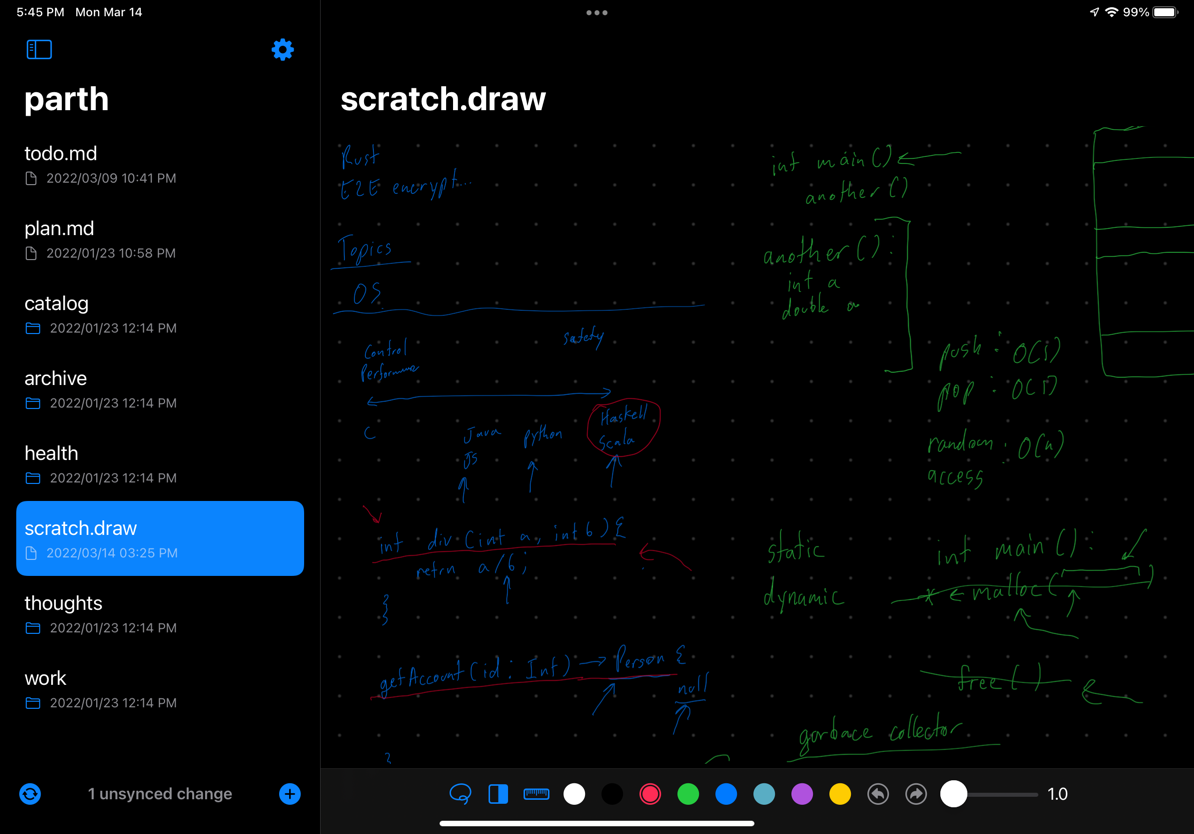 5:45 PM Mon Mar 14
99%
parth
todo.md
2022/03/09 10:41 PM
plan.md
2022/01/23 10:58 PM
catalog
2022/01/23 12:14 PM
archive
2022/01/23 12:14 PM
health
2022/01/23 12:14 PM
scratch.draw
2022/03/14 03:25 PM
thoughts
2022/01/23 12:14 PM
work
2022/01/23 12:14 PM
1 unsynced change
scratch.draw
Rust
E2E encrypt...
Topics
OS
Control
Performance
safety
C
Java
JS
python
Haskell
Scala
int div (int a, int b) {
retrn a/b;
}
getAccount(id: Int) → Person {
null
int main()
another()
another():
int a
double a
push : O(1)
pop : O(1)
random : O(n)
access
static
dynamic
int main():
* ← malloc( )
free( )
garbace collector
1.0